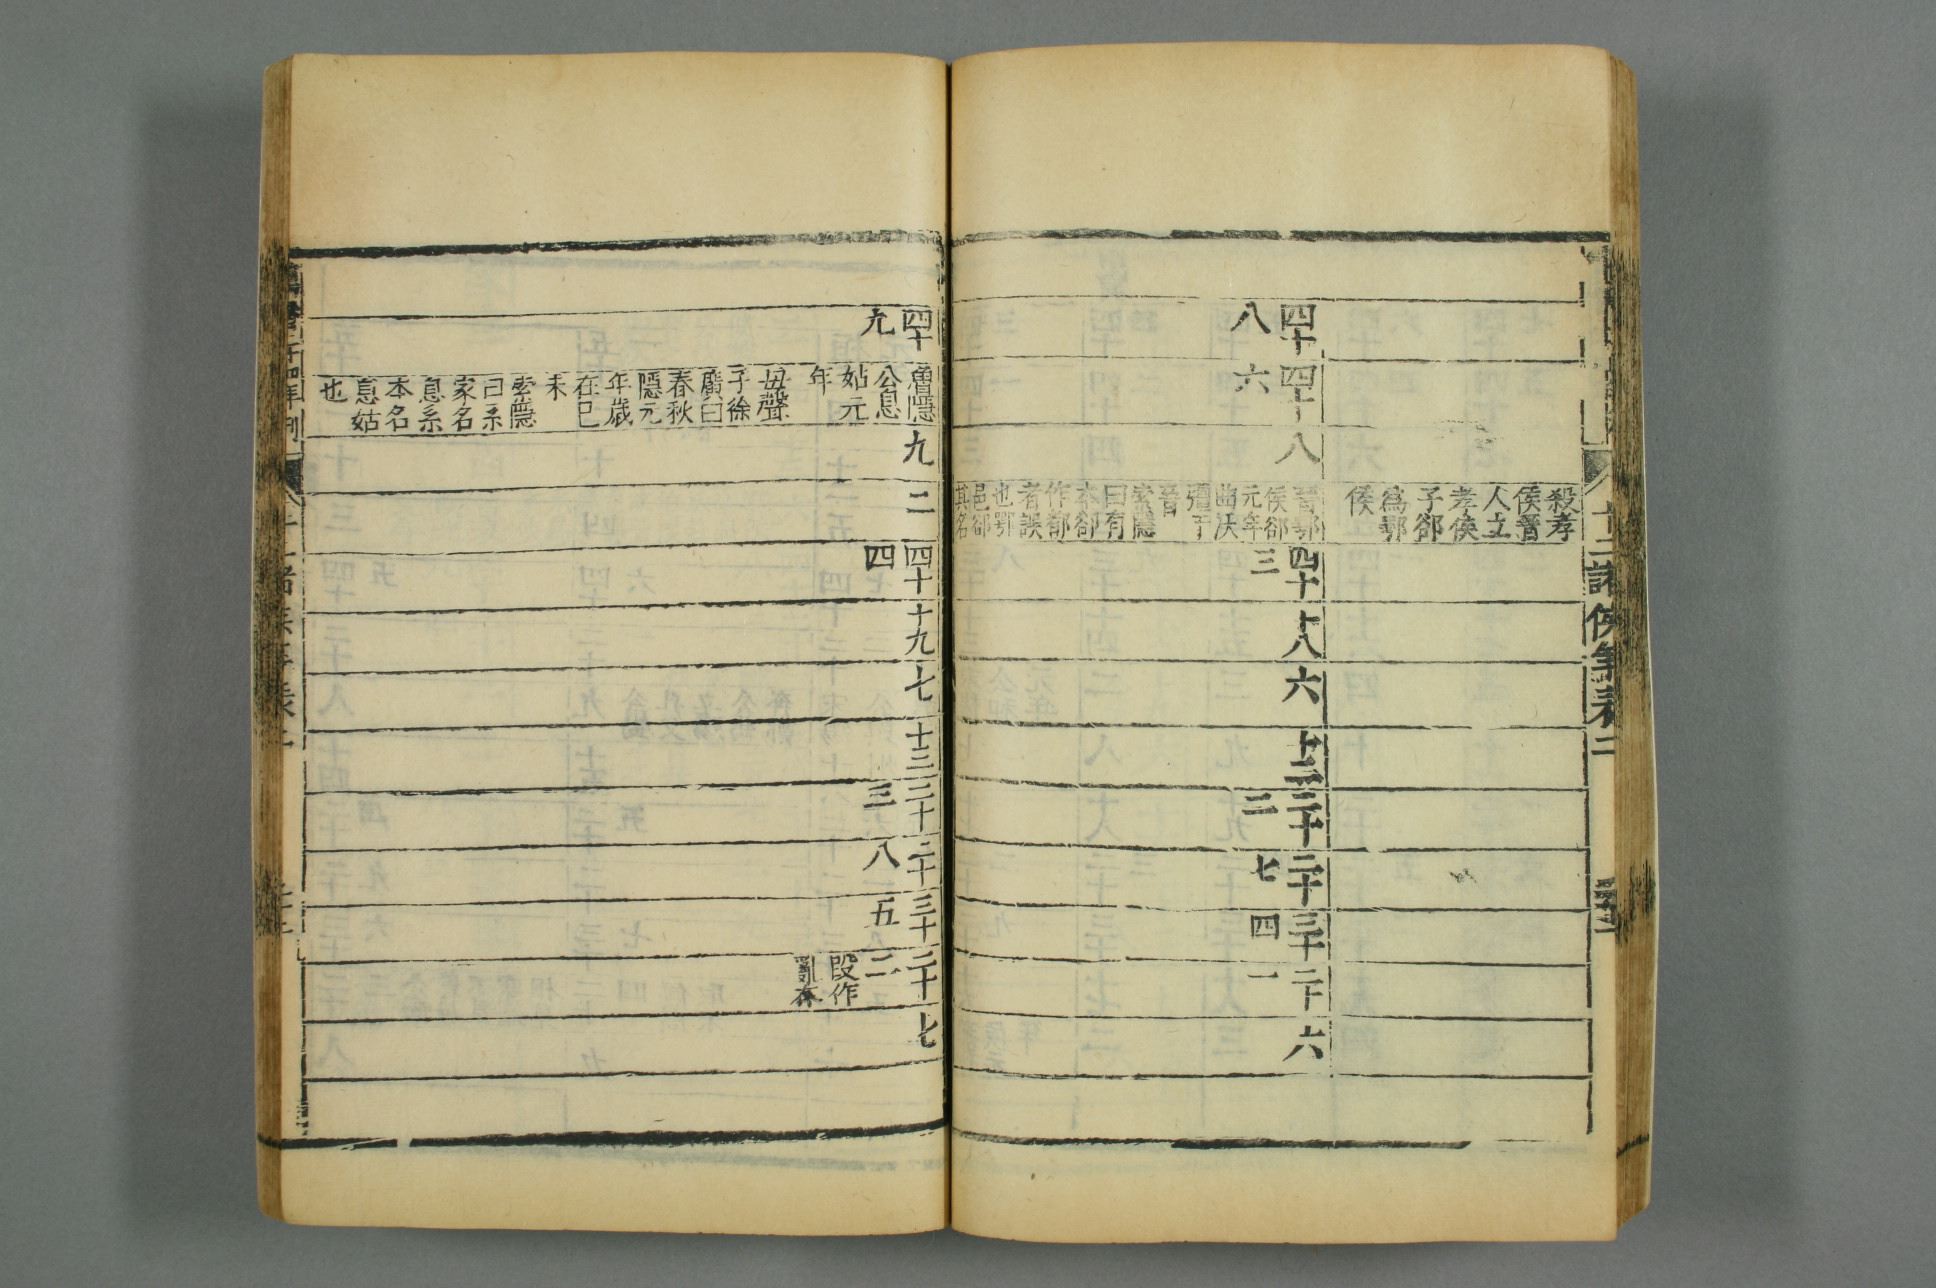 十二諸侯年表二
殺孝
侯晉
人立
孝侯
子郤
為鄂
侯
四十
八
四十
六
八
晉鄂
侯郤
元年
曲沃
彊于
晉
索隱
曰有
本郤
作都
者誤
也鄂
邑郤
其名
四十
三
十八
六
十二
二十
二
二十
七
三十
四
二十
一
六
四十
九
魯隱
公息
姑元
年
母聲
子徐
廣曰
春秋
隱元
年歲
在己
未
索隱
曰系
家名
息系
本名
息姑
也
九
二
四十
四
十九
七
十三
二十
三
二十
八
三十
五
二十
二
段作
亂奔
七